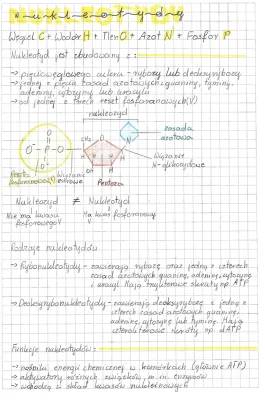 Nukleotydy
Węgiel C + Wodór H + Tlen O + Azot N + Fosfor P
Nukleotyd jest zbudowany z:
→ pięciowęglowego cukru - rybozy lub deoksyrybozy
→ jednej z pięciu zasad azotowych: guaniny, tyminy,
adeniny, cytozyny lub uracylu
→ od jednej z trzech reszt fosforanowych (V)
nukleozyd
zasada
azotowa
O
O⁻ P O
O⁻
CH₂
O
H H
Wiązanie
N-glikozydowe
Reszta
fosforanowa (V)
Wiązanie
estrowe
Pentoza
Nukleozyd ≠ Nukleotyd
Nie ma kwasu
fosforowego V
Ma kwas fosforowy
Rodzaje nukleotydów
→ Rybonukleotydy - zawierają rybozę oraz jedną z czterech
zasad azotowych guaninę, adeninę, cytozynę
i uracyl. Mają skróty np ATP
→ Deoksyrybonukleotydy - zawierają deoksyrybozę i jedną z
czterech zasad azotowych guaninę,
adeninę, cytozynę lub tyminę. Mają
czteroliterowe skróty np dATP
Funkcje nukleotydów:
→ nośniki energii chemicznej w komórkach (głównie ATP)
→ aktywatory różnych związków, m.in. enzymów
→ wchodzą w skład kwasów nukleinowych